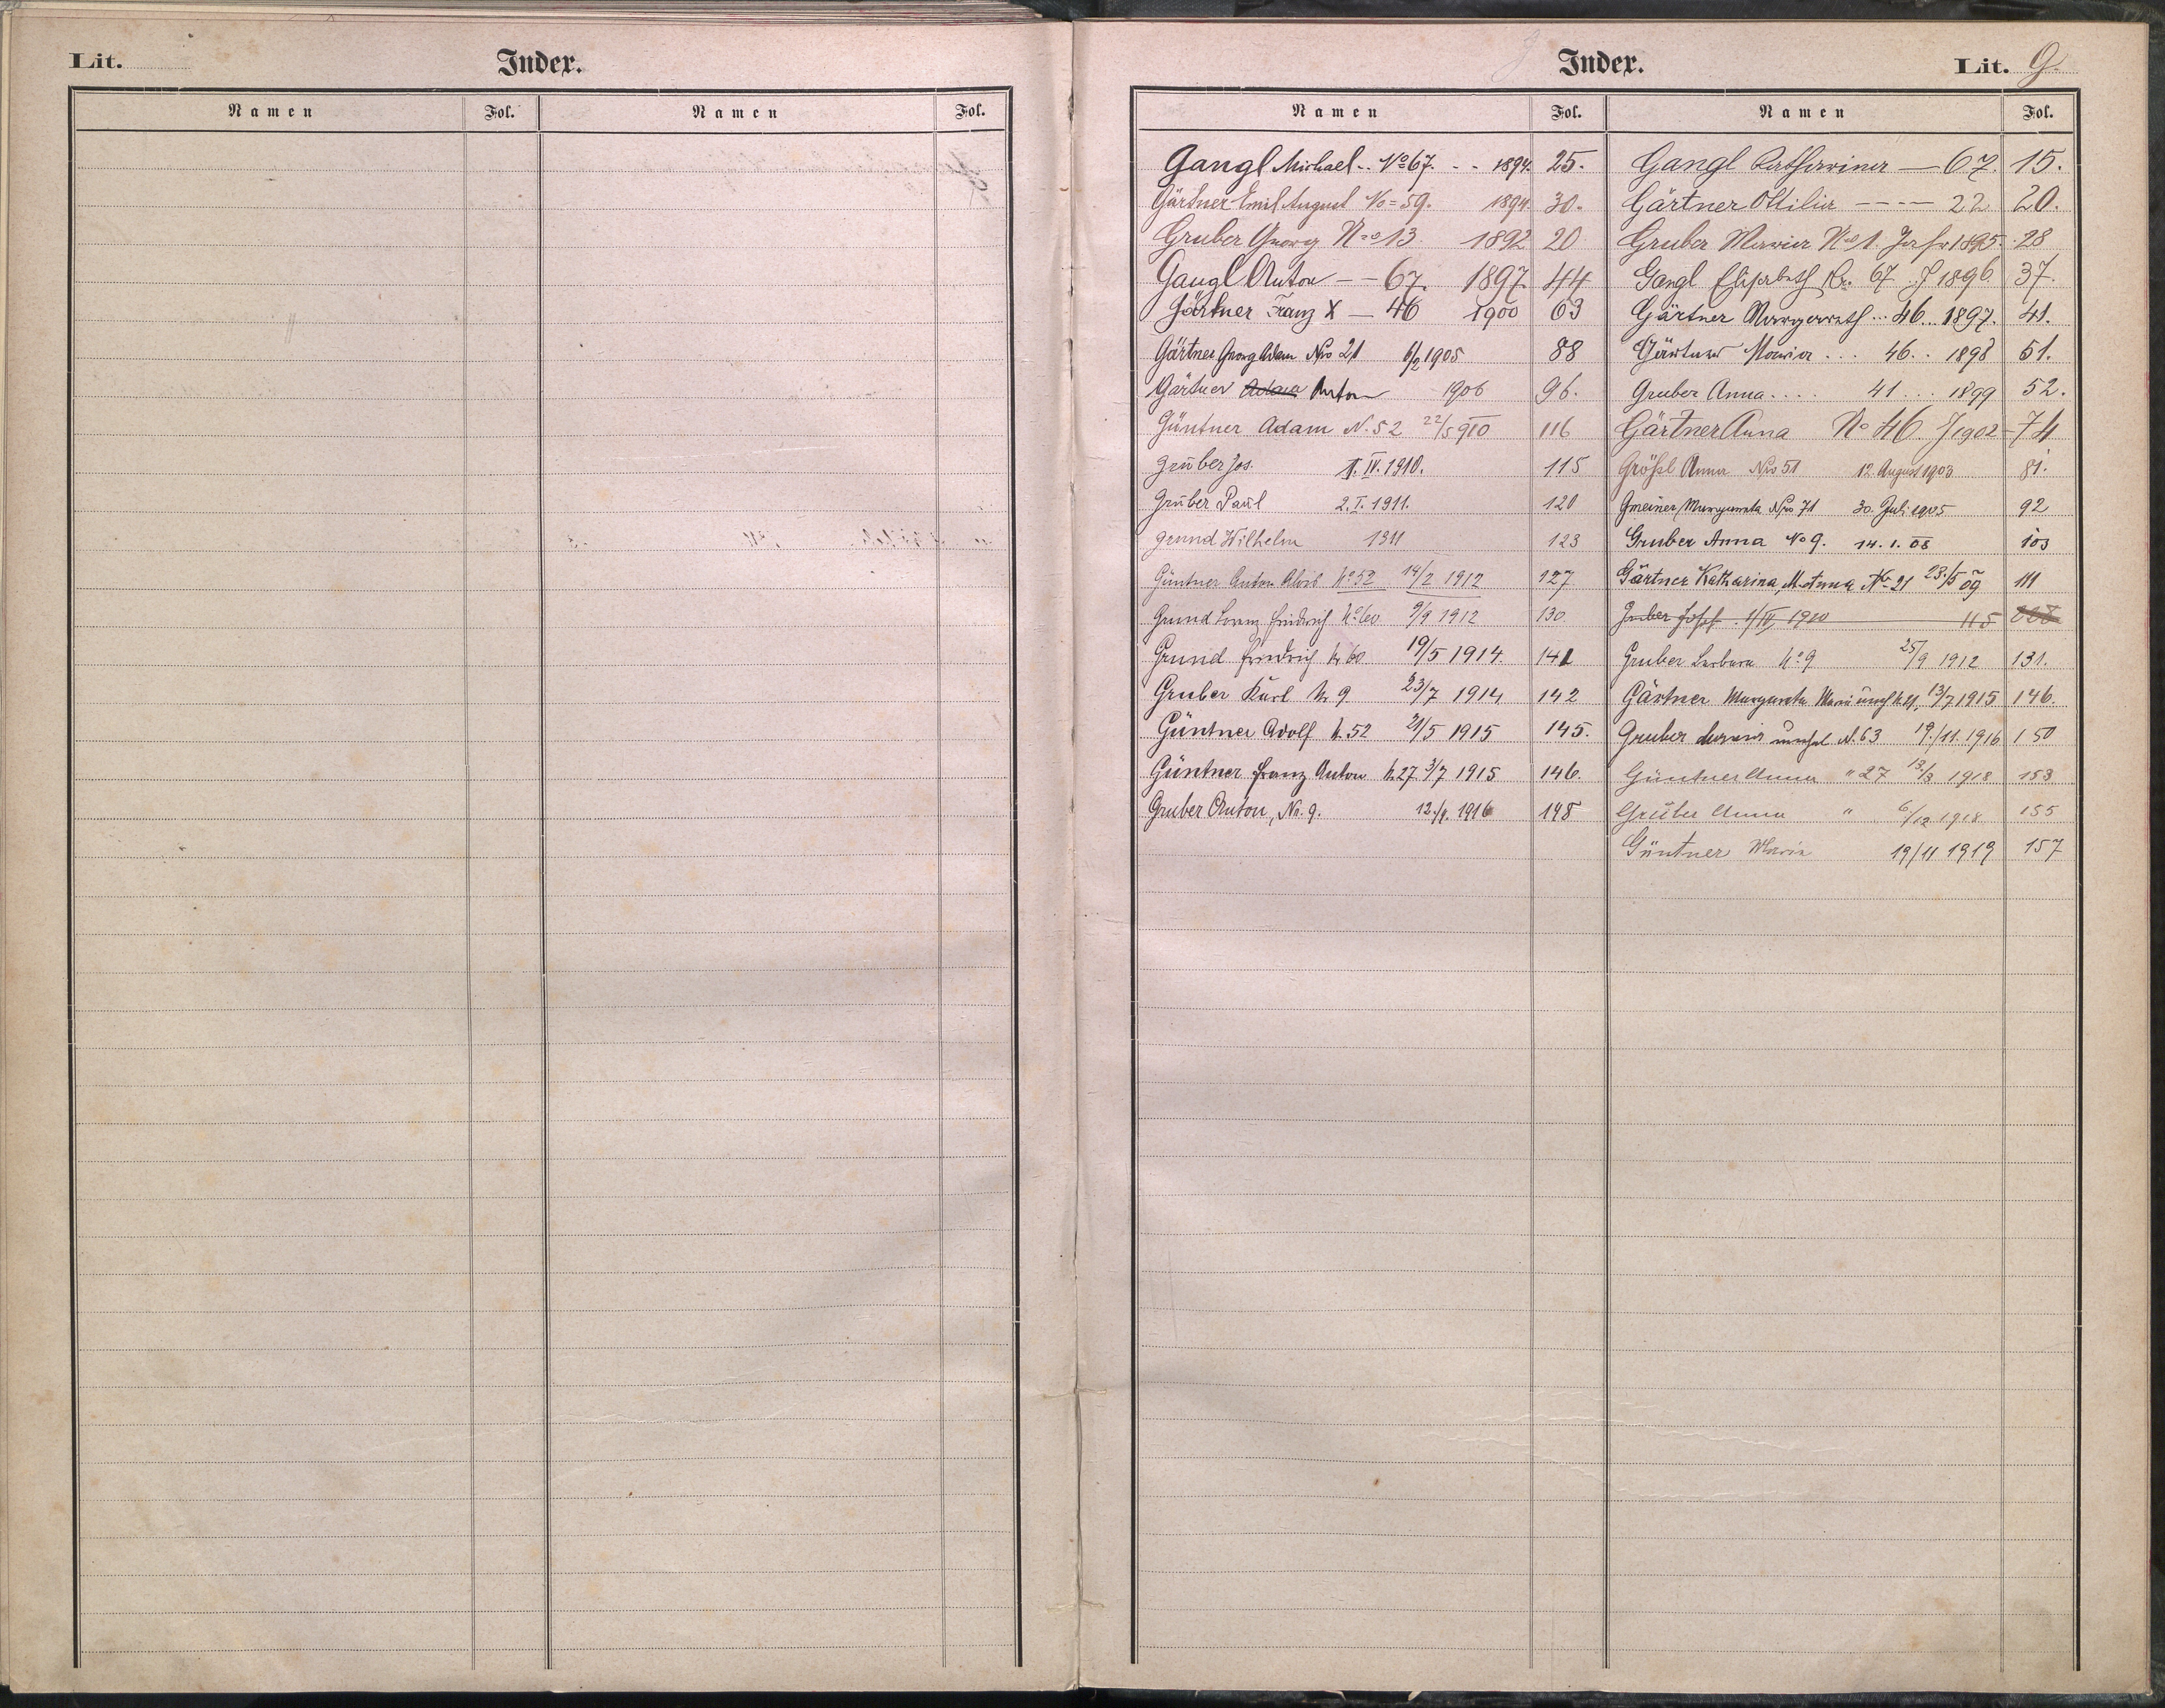 Lit.
Index.
Namen Fol. Namen Fol.
Index.
Lit. G.
Namen Fol. Namen Fol.
Gangl Michael .. No 67. - - 1894. 25.
Gärtner Emil August No = 59. 1894. 30.
Gruber Georg No 13. 1892 20
Gangl Anton — 67. 1897. 44
Gärtner Franz X — 46 1900 63
Gärtner Georg Adam Nro 21 6/2 1905 88
Gärtner Adam Anton 1906 96.
Güntner Adam N. 52 22/5 910 116
Gruber Jos. 1. IV. 1910. 115
Gruber Paul 2. I. 1911. 120
Grund Wilhelm 1911 123
Güntner Anton Alois No 52 14/2 1912 127
Grund Lorenz Friedrich No 60 9/9 1912 130.
Grund Friedrich Nr 60 19/5 1914. 141
Gruber Karl Nr 9 23/7 1914 142
Güntner Adolf N. 52 21/5 1915 145.
Güntner Franz Anton N. 27 3/7 1915 146.
Gruber Anton, Nr. 9. 1916 148
Gangl Katharina — 67. 15.
Gärtner Ottilia ---- 22 20.
Gruber Maria No 1. Jahr 1895. 28
Gangl Elisabeth Nr. 67 J 1896. 37.
Gärtner Margareth ... 46 .. 1897. 41.
Gärtner Maria ... 46 .. 1898 51.
Gruber Anna .... 41 ... 1899 52.
Gärtner Anna No 46. J 1902 - 74
Größl Anna Nro 51 12. August 1903 81.
Gmeiner Margareta Nro 71 30. Juli 1905 92
Gruber Anna No 9. 14. 1. 08 103
Gärtner Katharina, M. Anna No 21 23./5 09 111
Gruber Josef 1/IV. 1910 115
Gruber Barbara No 9 25/9 1912 131.
Gärtner Margareta Maria N. 21, 13/7 1915 146.
Gruber Maria N. 63 19./11. 1916 150
Güntner Anna " 27 1918 153
Gruber Anna " 6/12 1918 155
Güntner Maria 19/11 1919 157